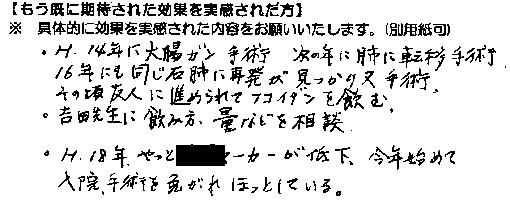 【もう既に期待された効果を実感された方】
※ 具体的に効果を実感された内容をお願いいたします。(別用紙可)
・H.14年に大腸ガン手術 次の年に肺に転移手術
16年にも同じ右肺に再発が見つかり又手術。
その頃友人に進められてフコイダンを飲む。
・吉田先生に飲み方、量などを相談
・H.18年、やっと ーカーが低下、今年始めて
入院、手術を免がれほっとしている。